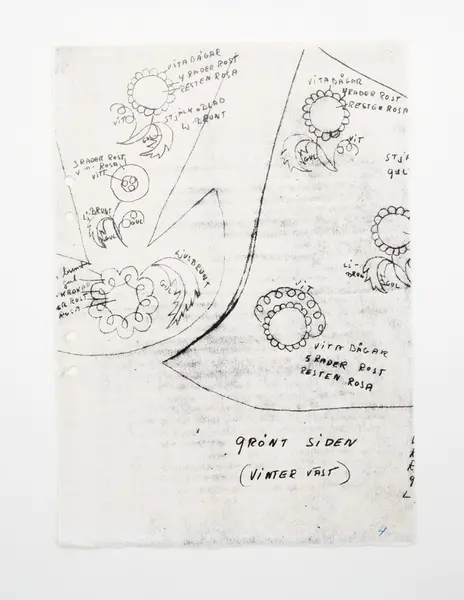 VITA BÅGAR
4 RADER ROST
RESTEN ROSA
VIT
STJÄLK + BLAD
LJ-BRUNT
GUL
3 RADER ROST
VITT
LJ BRUNT
GUL
GUL
LJUSBRUNT
GUL
VITA BÅGAR
4 RADER ROST
RESTEN ROSA
VIT
GUL
STJÄ
GUL
LJ-
BRUN
GUL
VIT
VITA BÅGAR
5 RADER ROST
RESTEN ROSA
GRÖNT SIDEN
(VINTER VÄST)
4